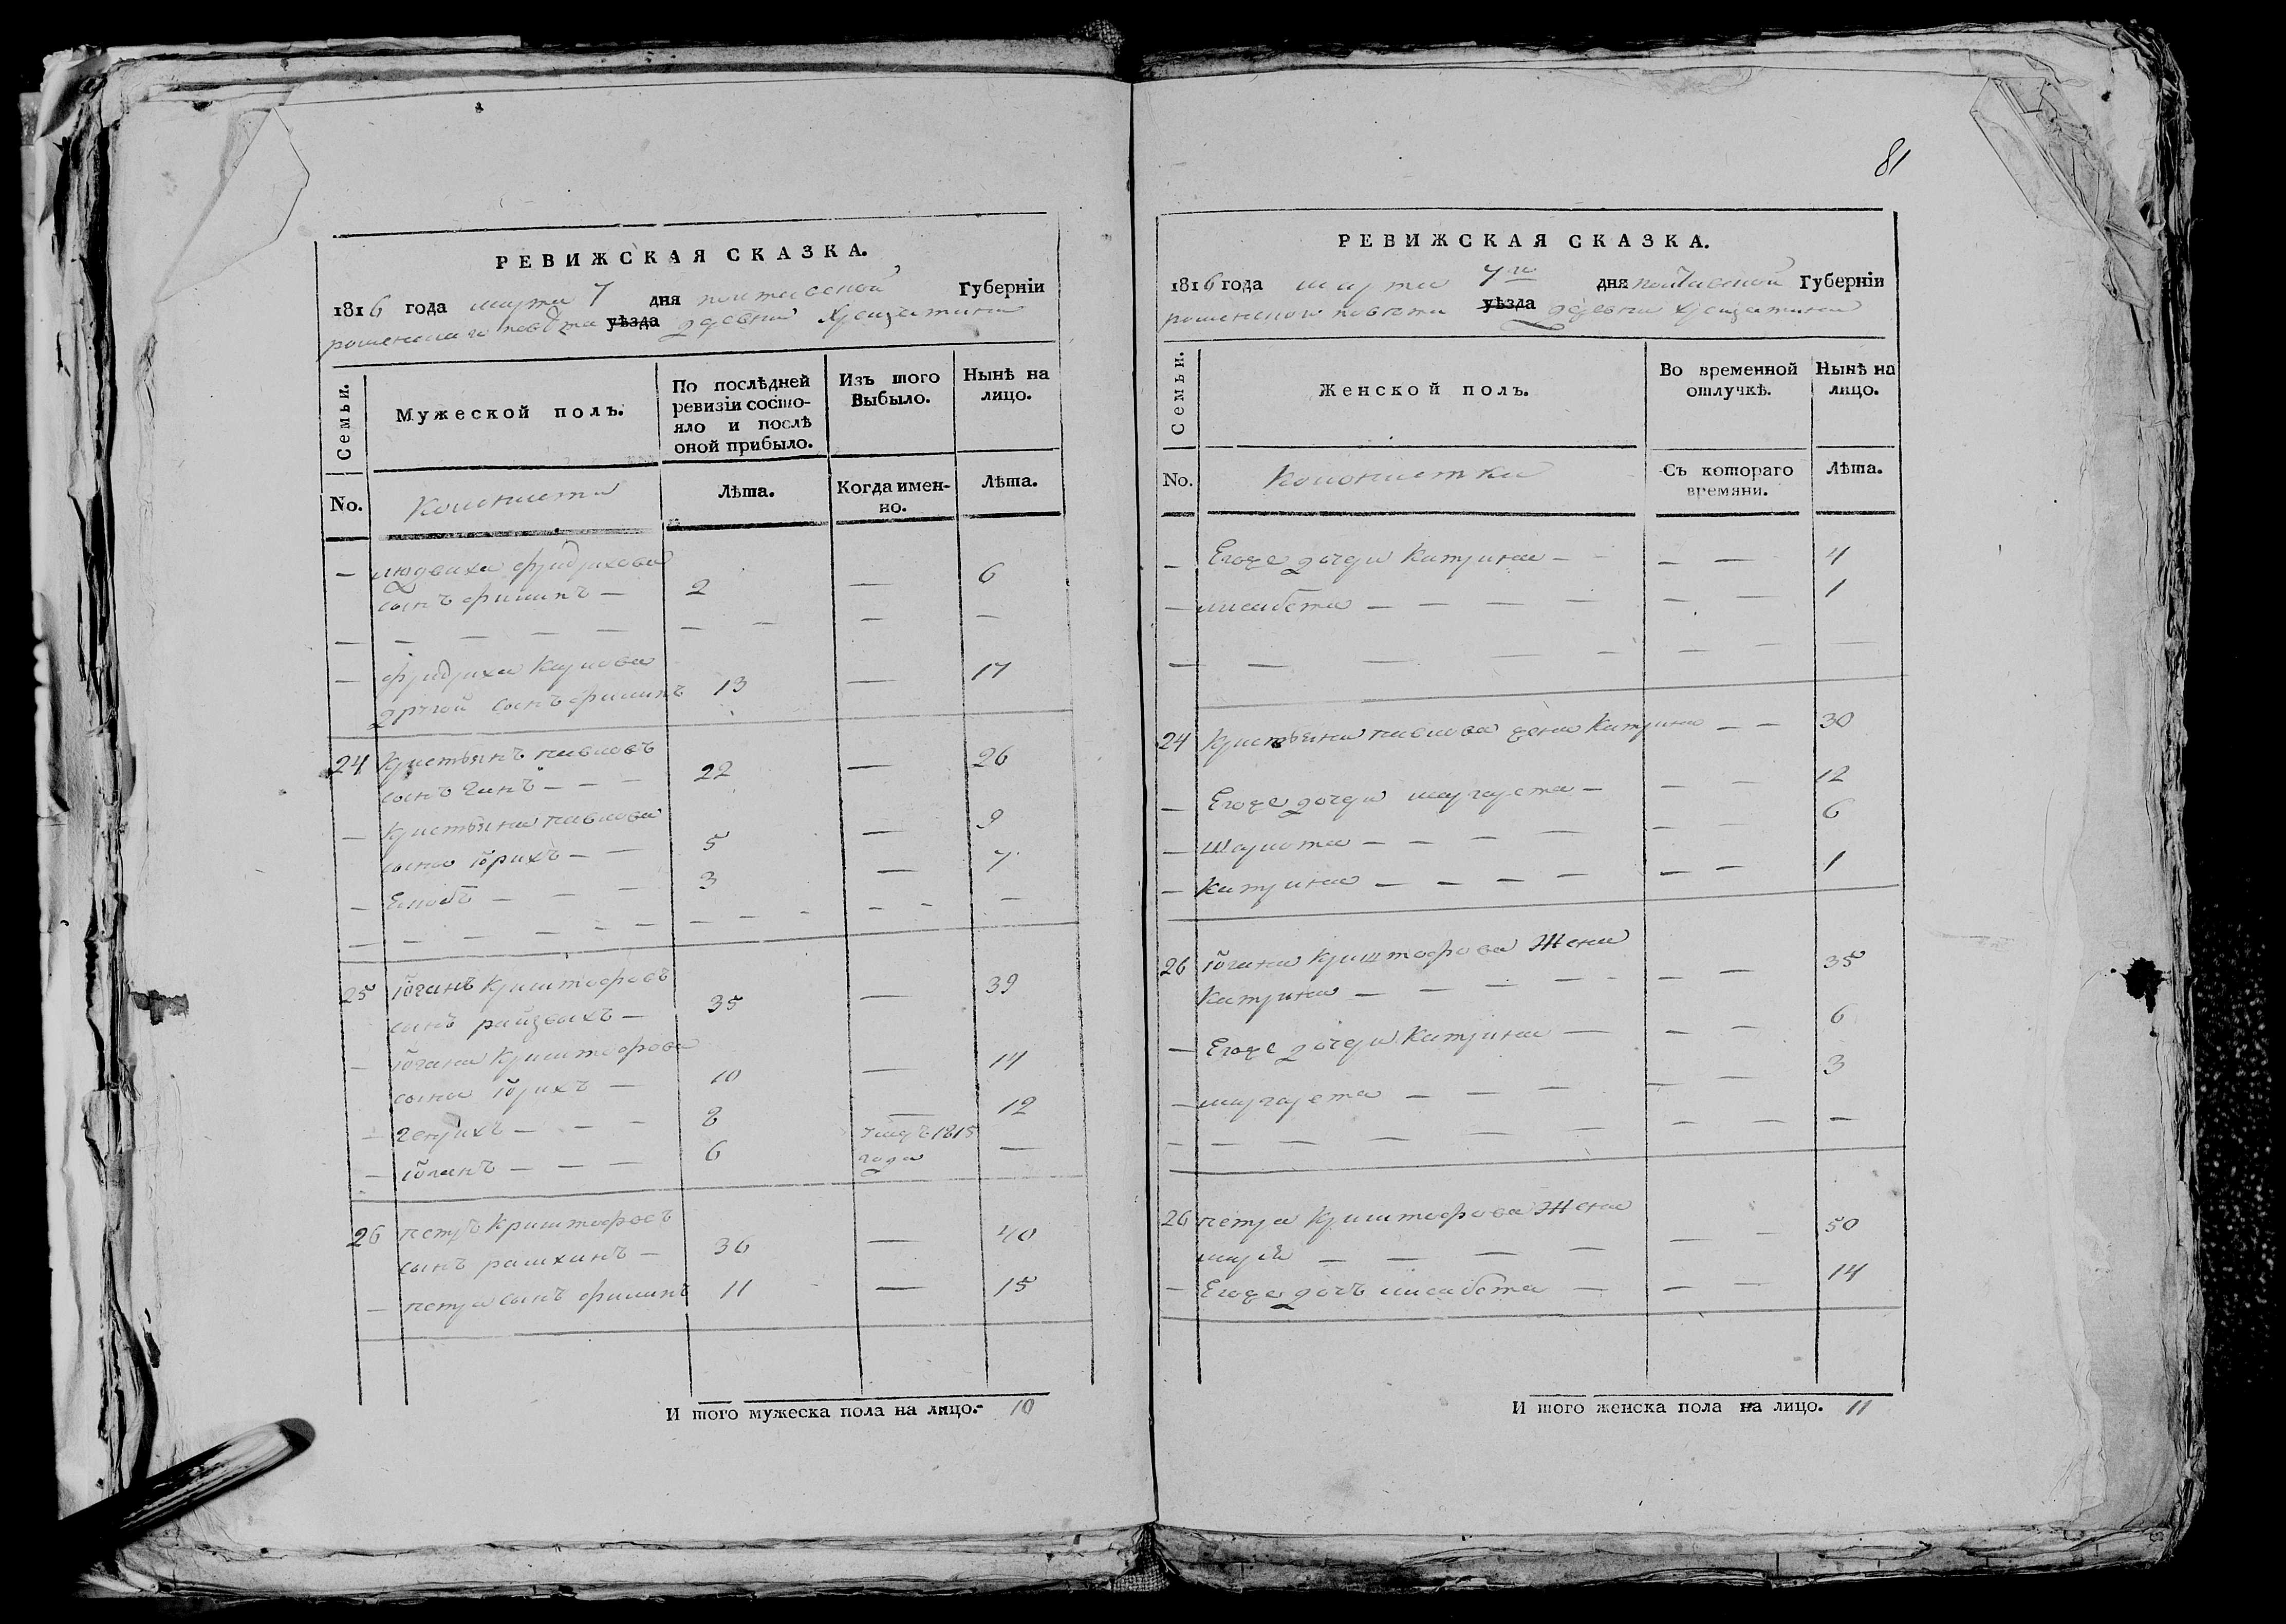 81
РЕВИЖСКАЯ СКАЗКА.
1816 года марта 7 дня полтавской Губерніи
роменскаго повѣта уѣзда деревни Хрещатики
Семьи.
Мужеской полъ.
По послѣдней
ревизіи состо-
яло и послѣ
оной прибыло.
Изъ того
Выбыло.
Нынѣ на
лицо.
No.
Колонисты
Лѣта.
Когда имен-
но.
Лѣта.
— людвиха фридрихова
сынъ филипъ — 2 — 6
— — — — — — — — —
— фридриха Карлова
другой сынъ филипъ 13 — 17
24 Кристьянъ павловъ
сынъ ганъ — — 22 — 26
— Кристьяна павлова
сыны юрихъ — — 5 — 9
— Якобъ — — — 3 — 7
— — — — — — — — — — — — —
25 юганъ Криштофовъ
сынъ — 35 — 39
— югана Криштофова
сыны юрихъ — 10 — 14
— генрихъ — — — 8 — 12
— юганъ — — — 6 1815 —
года
26 петръ Криштофовъ
сынъ — 36 — 40
— петра сынъ филипъ 11 — 15
И того мужеска пола на лицо. 10
РЕВИЖСКАЯ СКАЗКА.
1816 года марта 7го дня полтавской Губерніи
повѣта уѣзда деревни Хрещатики
Семьи.
Женской полъ.
Во временной
отлучкѣ.
Нынѣ на
лицо.
No.
Колонистки
Съ котораго
времяни.
Лѣта.
— Егоже дочери Катрина — — — 4
— лисабета — — — — — — 1
— — — — — — — —
24 Кристьяна павлова жена Катрина — — 30
— Егоже дочери маргарета — — — 12
— Шарлота — — — — — — 6
— Катрина — — — — — — 1
26 югана Криштофова Жена
Катрина — — — — — — — 35
— Егоже дочери Катрина — — — 6
— маргарета — — — — — 3
— — — — — — — — — —
26 петра Криштофова Жена
— — — — — — 50
— Егоже дочь лисабета — — — 14
И того женска пола на лицо. 11